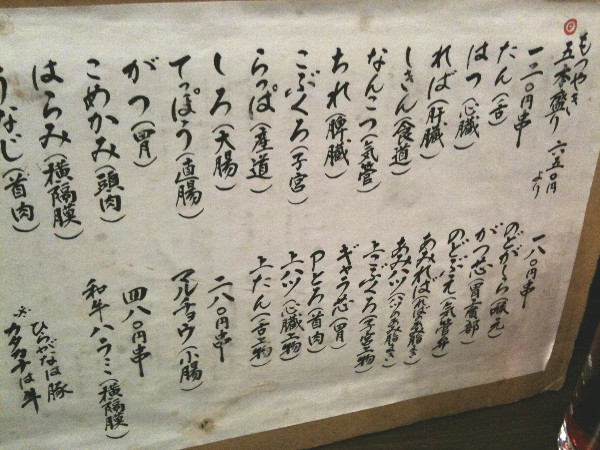 もつやき
五本盛り 六五〇円より
一二〇円串
たん(舌)
はつ(心臓)
ればー(肝臓)
しきん(食道)
なんこつ(気管)
ちれ(脾臓)
こぶくろ(子宮)
らっぱ(産道)
しろ(大腸)
てっぽう(直腸)
がつ(胃)
こめかみ(頭肉)
はらみ(横隔膜)
うなじ(首肉)
一八〇円串
のどがしら(喉元)
がつ芯(胃底部)
のどぶえ(気管串)
あみれば(ればあみ脂巻き)
あみハツ(ハツのあみ脂巻き)
上こぶくろ(子宮上物)
ギャラ芯(胃)
Pとろ(首肉)
上ハツ(心臓上物)
上たん(舌上物)
二八〇円串
マルチョウ(小腸)
四八〇円串
和牛ハラミ(横隔膜)
ひらがなは豚
※カタカナは牛